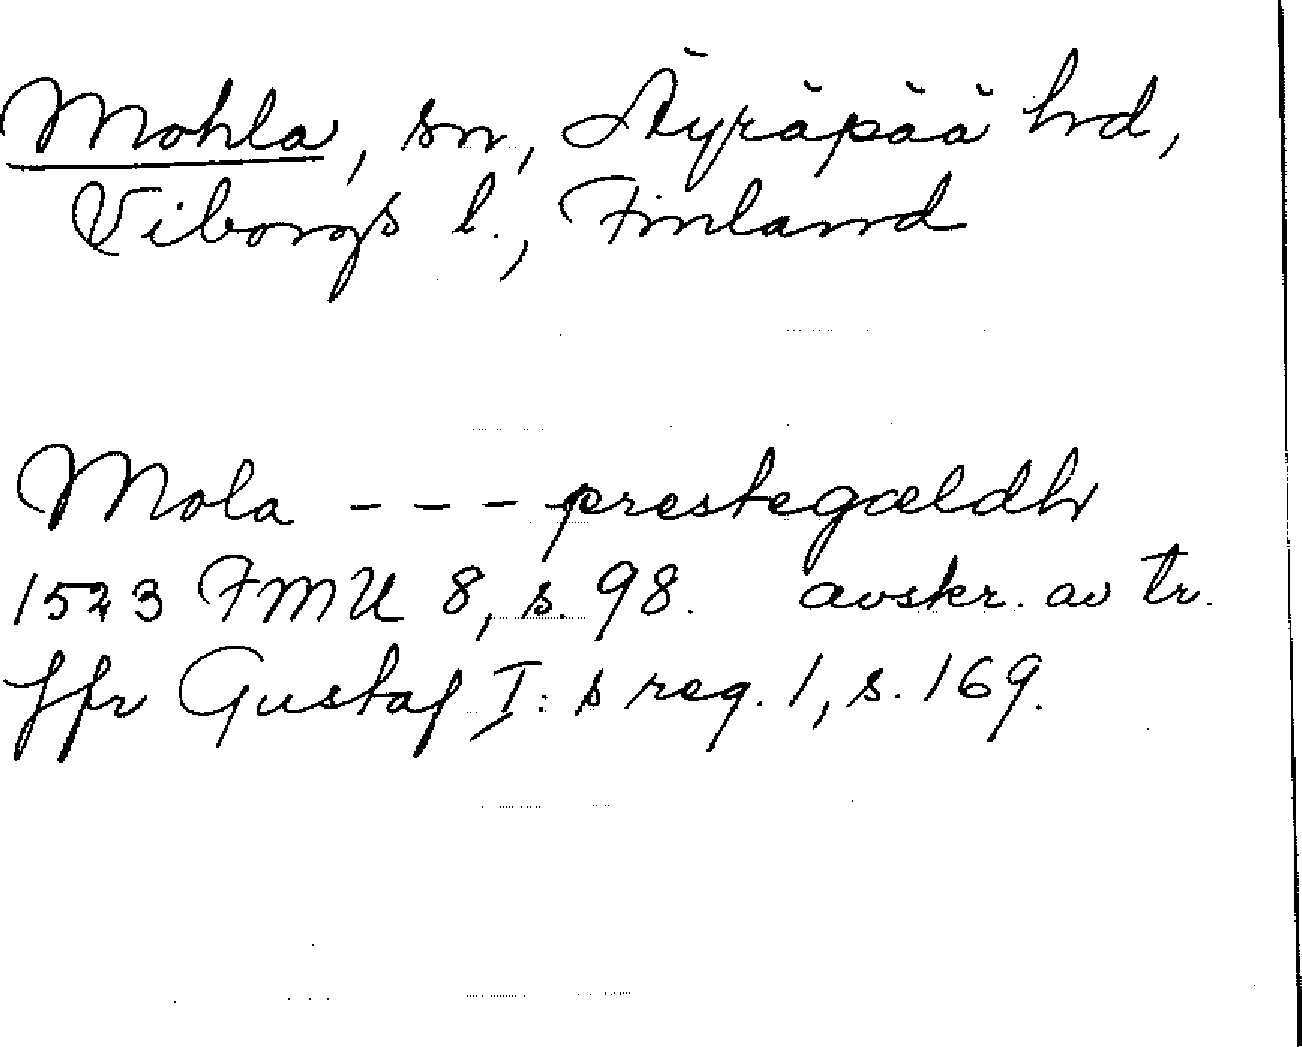 Mohla, sn, Äyräpää hd,
Viborgs l., Finland
Mola - - - prestegældh
1523 FMU 8, s. 98. avskr. av tr.
Jfr Gustaf I:s reg. 1, s. 169.